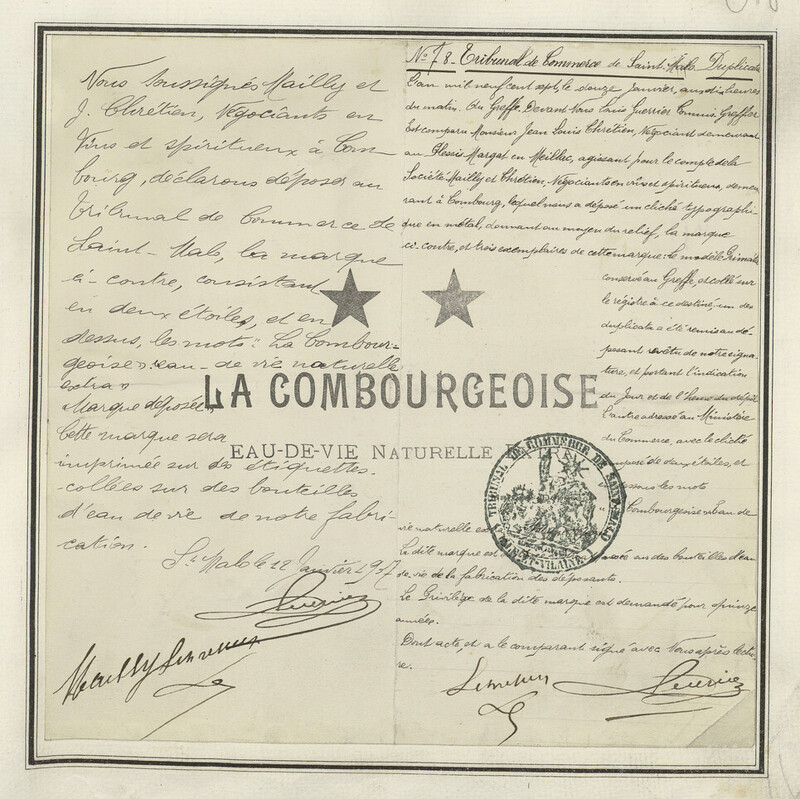 Nous soussignés Mailly et
J. Chrétien, Négociants en
Vins et spiritueux à Com-
bourg, déclarons déposer au
Tribunal de Commerce de
Saint-Malo, la marque
ci-contre, consistant
en deux étoiles, et en
dessus, les mots: "La Combour-
geoise" eau-de-vie naturelle
extra"
Marque déposée,
Cette marque sera
imprimée sur des étiquettes
collées sur des bouteilles
d'eau de vie de notre fabri-
cation.
St Malo le 12 Janvier 1907
LA COMBOURGEOISE
EAU-DE-VIE NATURELLE EXTRA
No 78 - Tribunal de Commerce de Saint-Malo Duplicata
L'an mil neuf cent sept, le douze janvier, aux dix heures
du matin. Au Greffe. Devant Nous Louis Guerrier Commis Greffier
Est comparu Monsieur Jean Louis Chrétien, Négociant demeurant
au Plessis Margat en Meillac, agissant pour le compte de la
Société Mailly et Chrétien, Négociants en vins et spiritueux, demeu-
rant à Combourg, lequel nous a déposé un cliché typographi-
que en métal, donnant au moyen du relief, la marque
ci-contre, et trois exemplaires de cette marque: le modèle Primata
conservé au Greffe, et collé sur
le registre à ce destiné, un des
duplicata a été remis au dé-
posant revêtu de notre signa-
ture, et portant l'indication
du Jour et de l'heure du dépôt
l'autre adressé au Ministère
du Commerce, avec le cliché
composé de deux étoiles, et
dessous les mots
Combourgeoise Eau de
vie naturelle
La dite marque est au des bouteilles d'eau
de-vie de la fabrication des déposants.
Le Privilège de la dite marque est demandé pour quinze
années.
Dont acte, et a le comparant signé avec Nous après lectu-
re.
TRIBUNAL DE COMMERCE DE SAINT-MALO
ILLE-ET-VILAINE